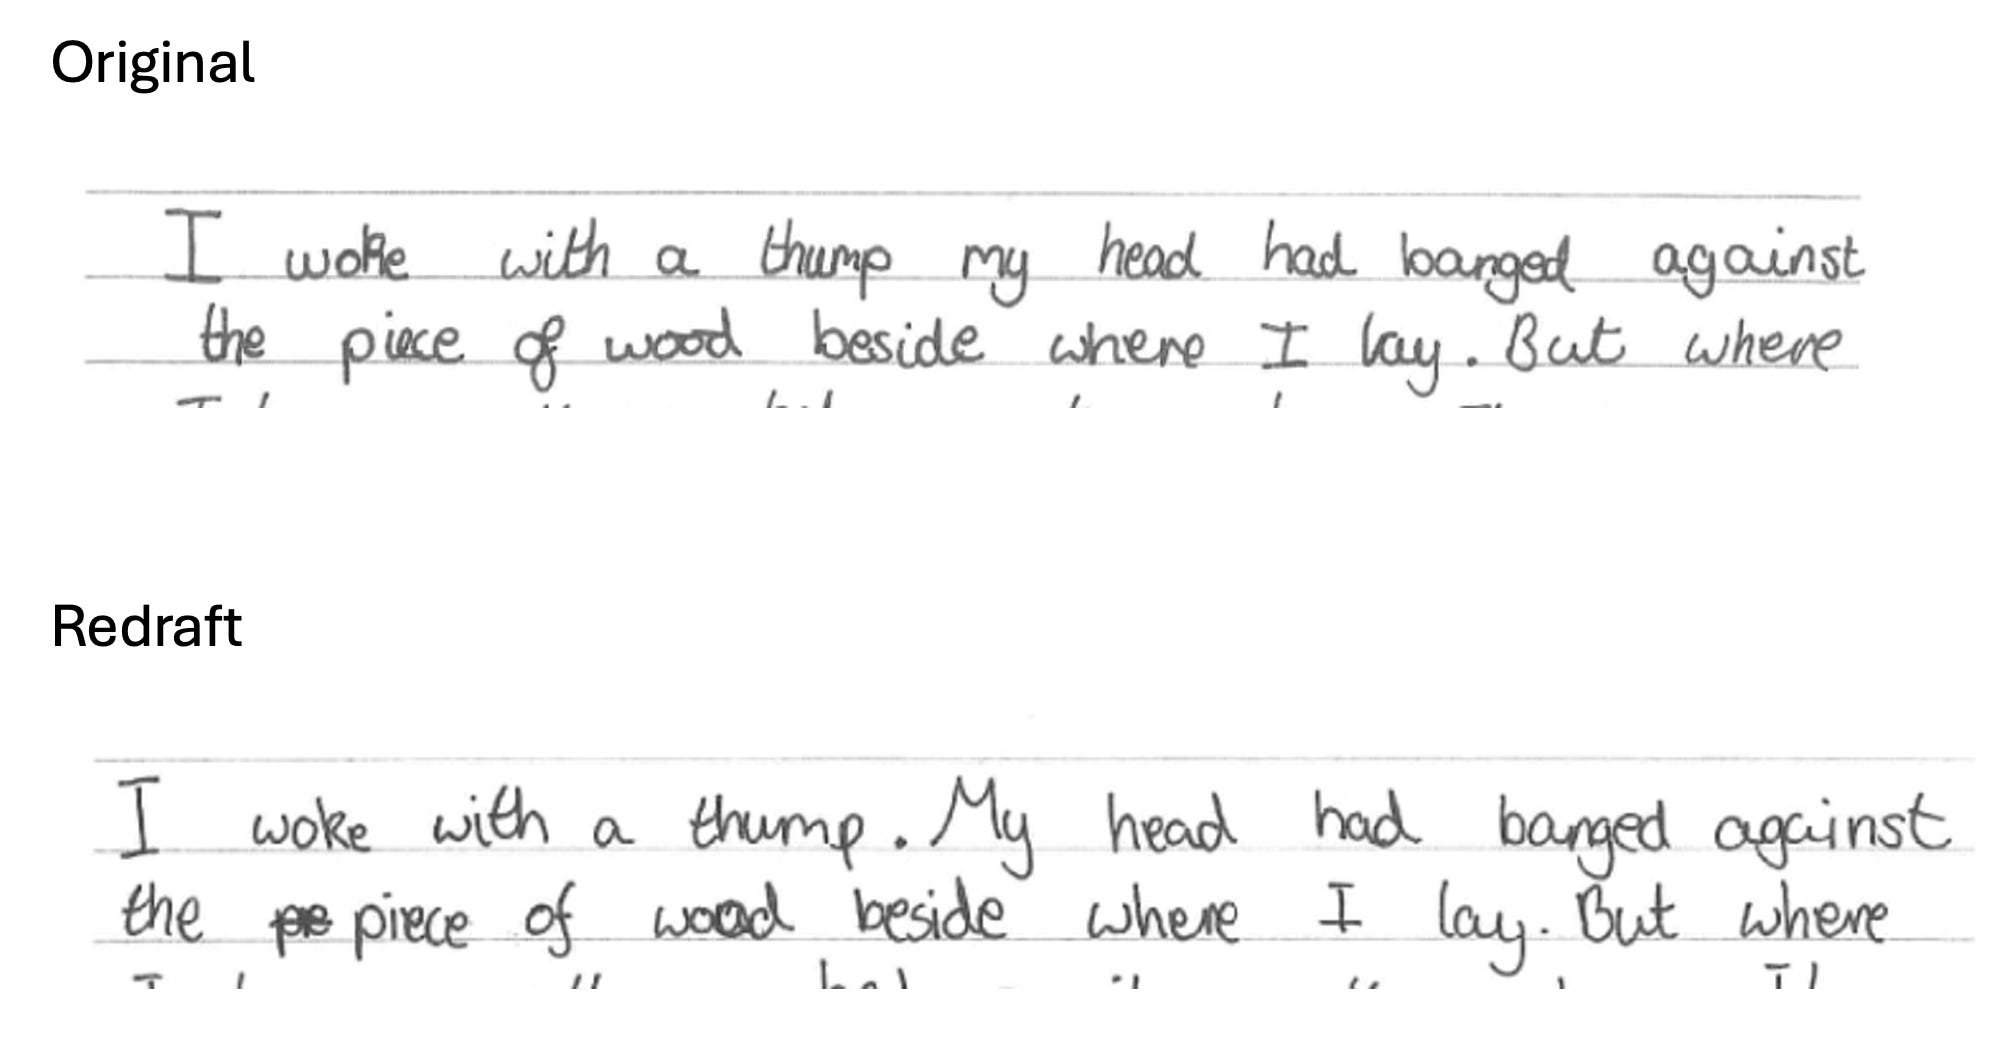 Original
I woke with a thump my head had banged against
the piece of wood beside where I lay. But where
Redraft
I woke with a thump. My head had banged against
the pe piece of wood beside where I lay. But where